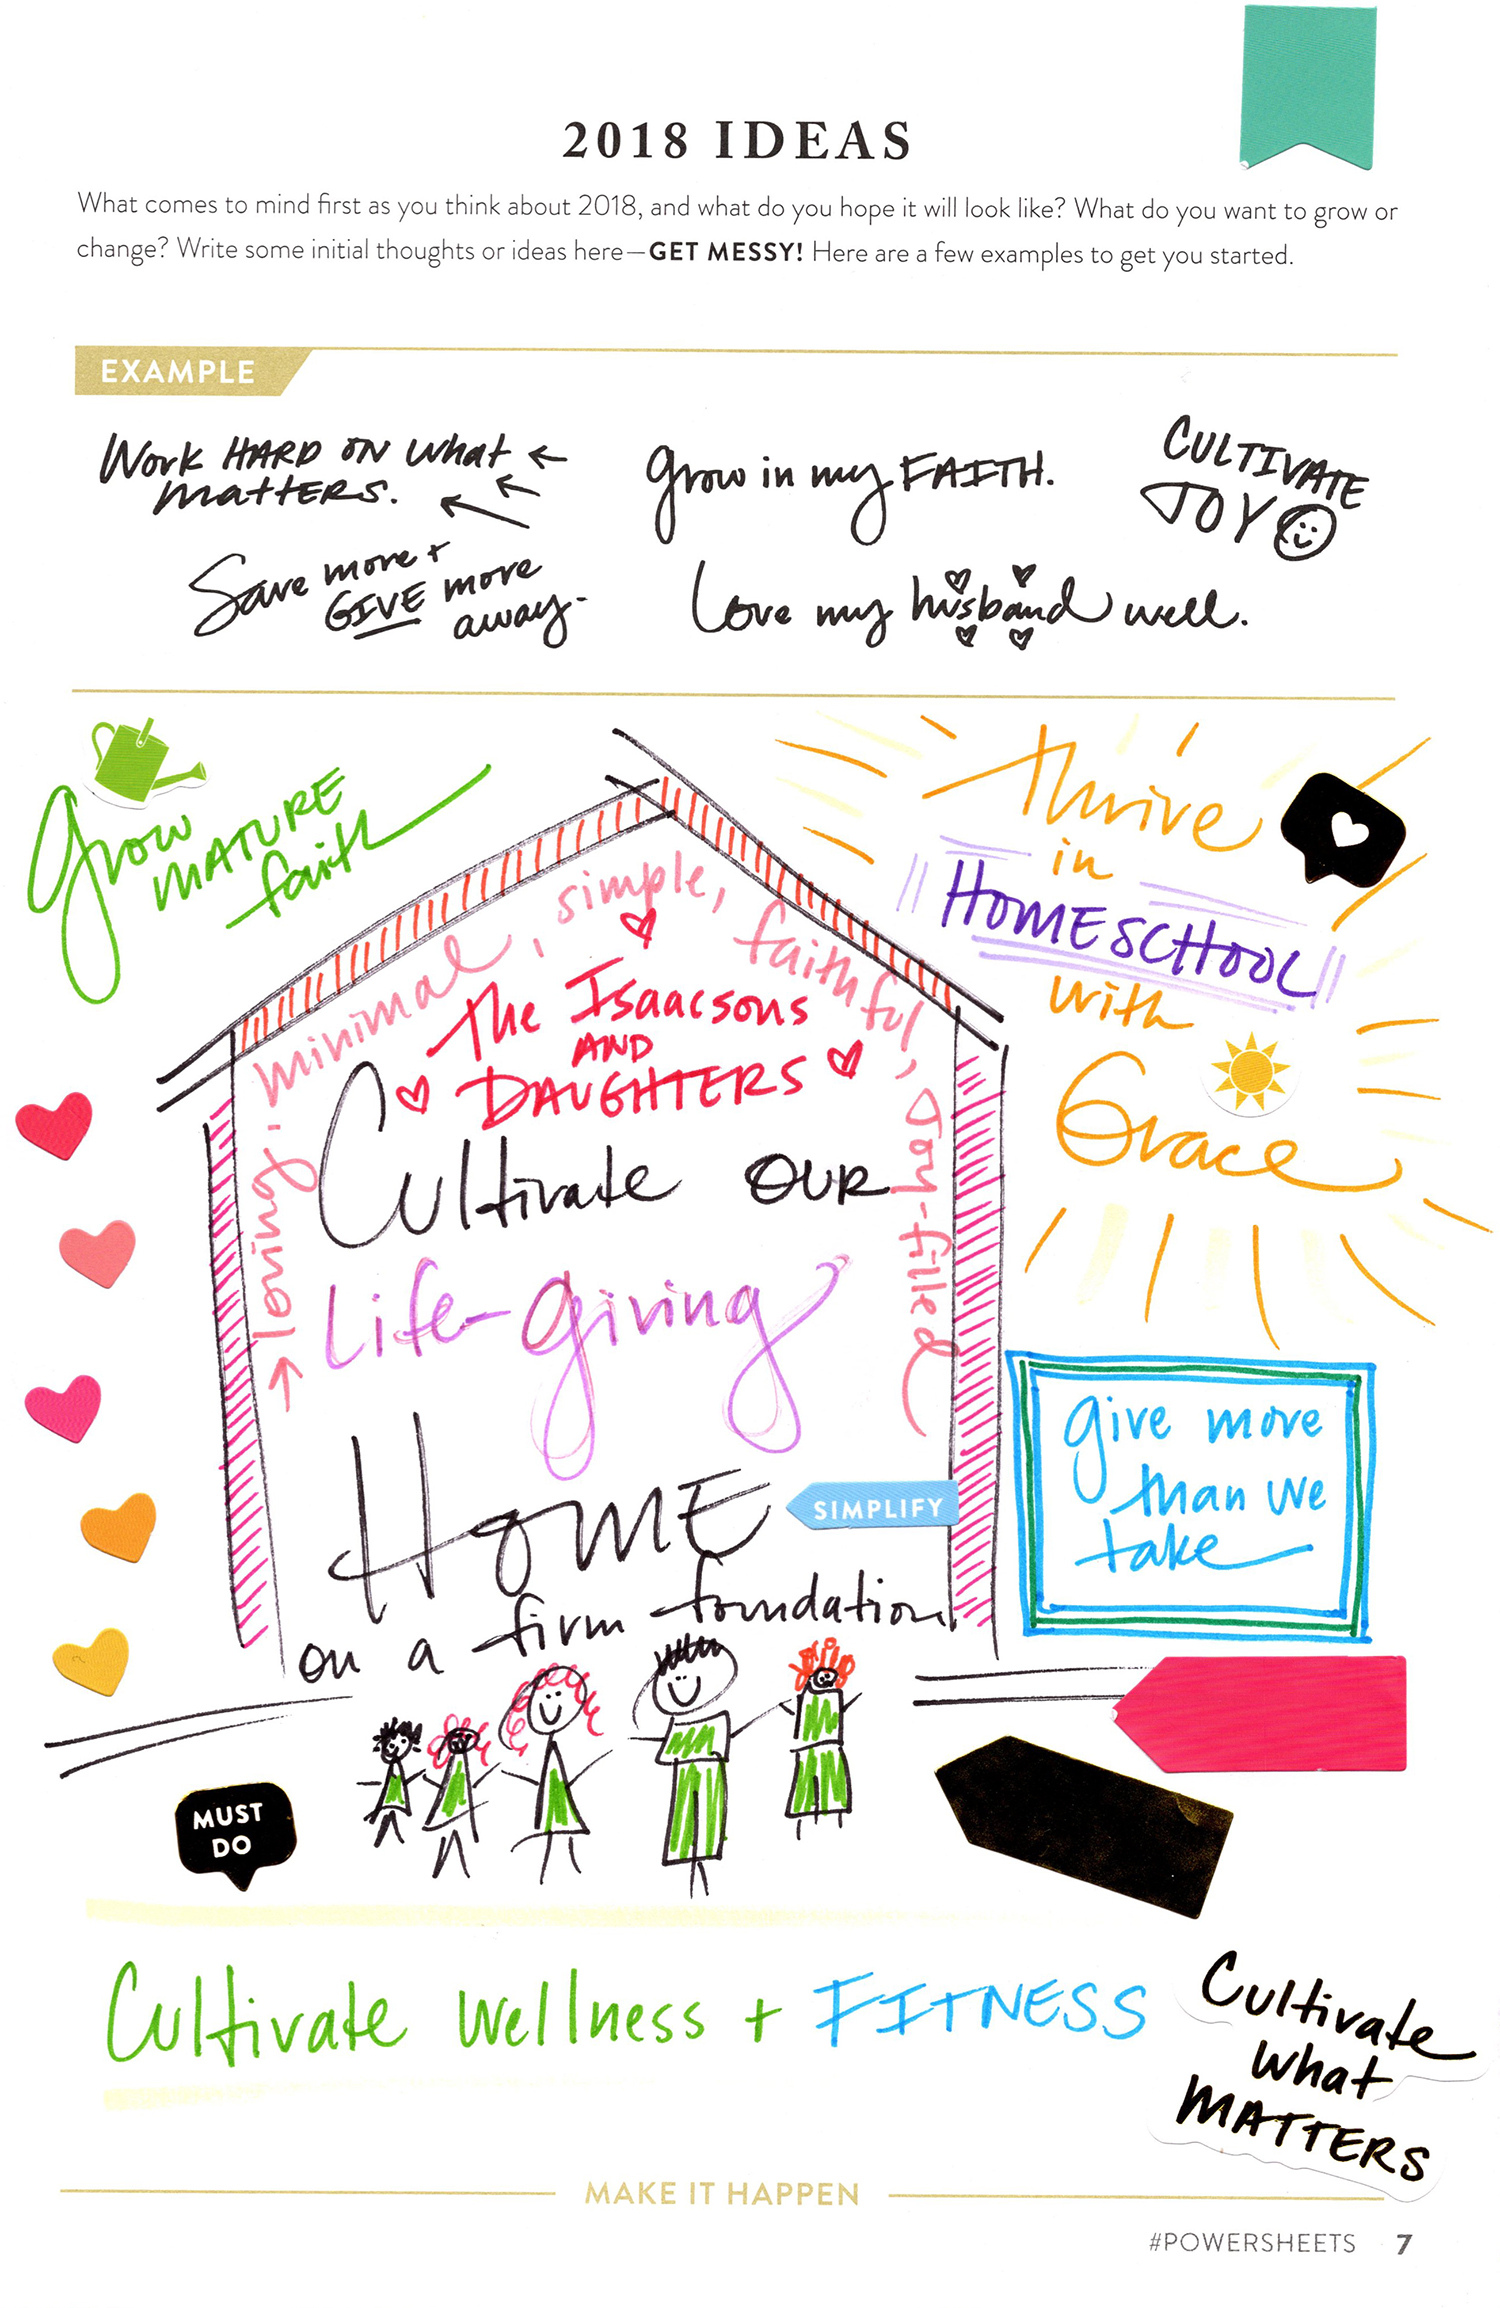 2018 IDEAS
What comes to mind first as you think about 2018, and what do you hope it will look like? What do you want to grow or
change? Write some initial thoughts or ideas here—GET MESSY! Here are a few examples to get you started.
EXAMPLE
Work HARD ON what
matters.
Save more +
GIVE more
away.
Grow in my FAITH.
Love my husband well.
CULTIVATE
JOY
Grow
MATURE
faith
thrive
in
HOMESCHOOL
with
Grace
loving, minimal, simple, faithful, Joy-filled
The Isaacsons
AND
DAUGHTERS
Cultivate OUR
Life-Giving
HOME
SIMPLIFY
on a firm foundation
give more
than we
take
MUST
DO
Cultivate wellness + FITNESS
Cultivate
what
MATTERS
MAKE IT HAPPEN
#POWERSHEETS 7